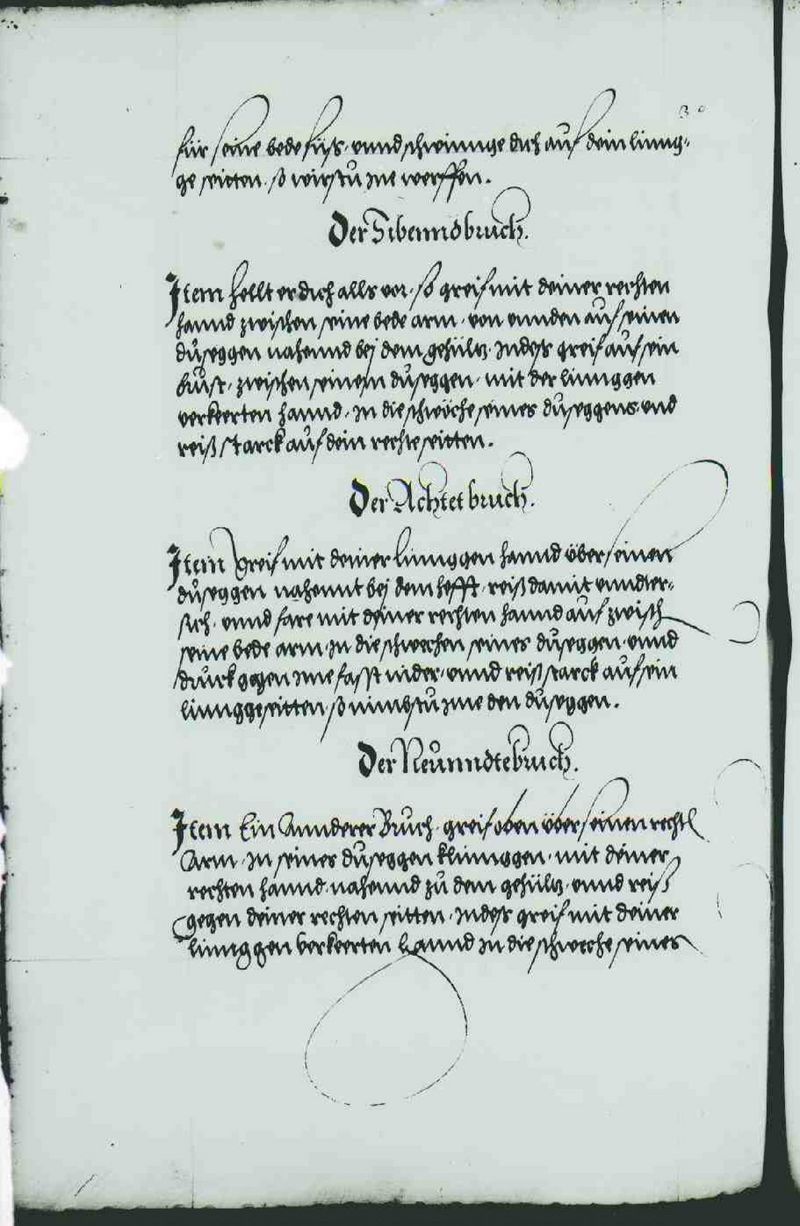 für seine bede füß, unnd schwinnge dich auf dein linng-
ge seitten, so wirstu Ime werffen.
Der Sibenndbruch.
Item hellt er dich alls vor, so greif mit deiner rechten
hannd zwischen seine bede arm, von unnden auf seinen
duseggen nahennd bej dem gehültz, Indess greif auf sein
brust, zwischen seinem duseggen, mit der linnggen
verkeerten hannd, In die schwöche seines duseggens, und
reiß starck auf dein rechte seitten.
Der Achtet bruch.
Item greif mit deiner linnggen hannd über seinen
duseggen nahennt bej dem hefft, reiß damit unndter-
sich, unnd fare mit deiner rechten hannd auf zwisch
seine bede arm, In die schwechen seines duseggen, unnd
druck gegen Ime fasst nider, unnd reiß starck auf sein
linngge seitten, so nimbstu Ime den duseggen.
Der Neunndte bruch.
Item Ein Annderer Bruch, greif oben über seinen recht
Arm, In seines duseggen klinnggen, mit deiner
rechten hannd, nahennd zu dem gehültz, unnd reiß
gegen deiner rechten seitten, Indess greif mit deiner
linnggen verkeerten hannd In die schweche seines